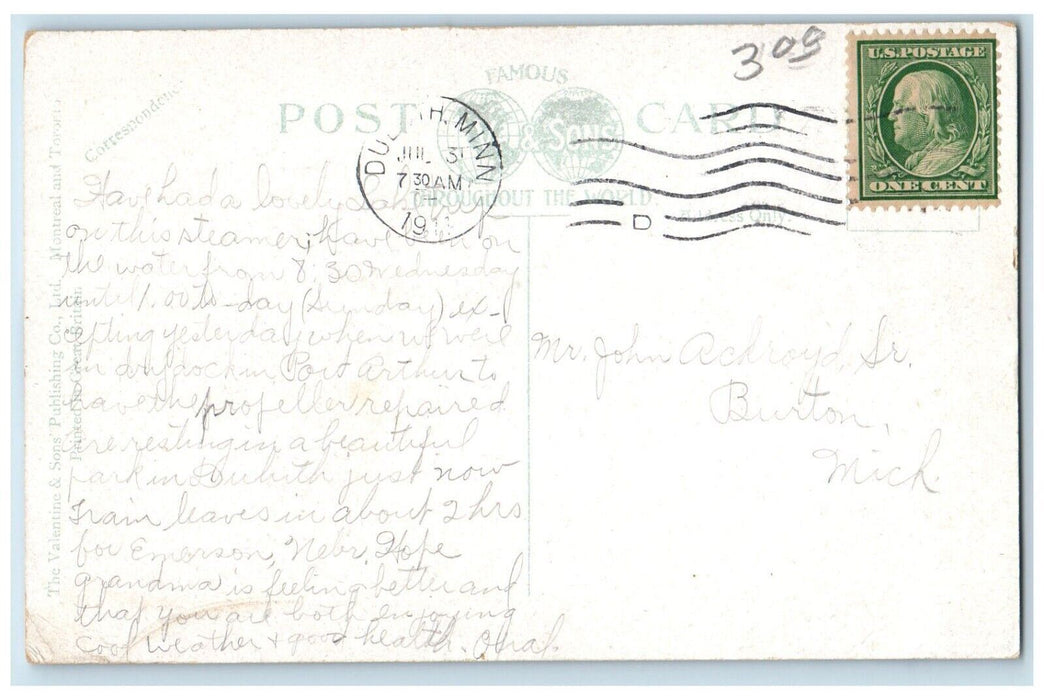 3 09
U.S. POSTAGE
ONE CENT
FAMOUS
POST CARD
& SONS
THROUGHOUT THE WORLD.
Correspondence
Only.
DULUTH, MINN
JUL 31
7 30 AM
191
D
The Valentine & Sons' Publishing Co., Ltd. Montreal and Toronto
Printed in Great Britain.
Have had a lovely
on this steamer; Have been on
the water from 8:30 Wednesday
until 1.00 to-day (Sunday) ex-
cepting yesterday when we were
in dry dock in Port Arthur to
have the propeller repaired
are resting in a beautiful
park in Duluth just now
Train leaves in about 2 hrs
for Emerson, Nebr. Hope
grandma is feeling better and
that you are both enjoying
cool weather + good health.
Mr. John Ackroyd Sr.
Burton,
Mich.